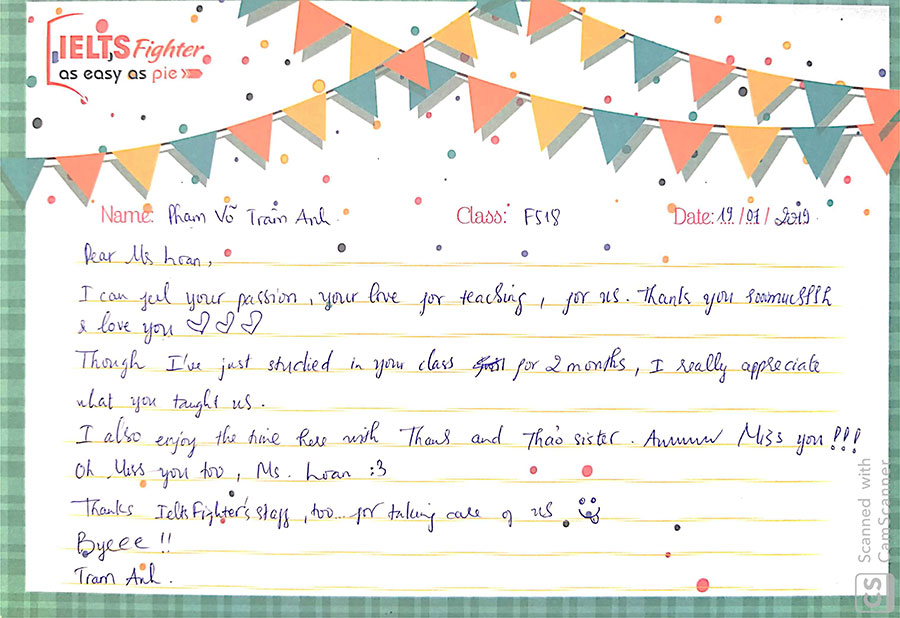 IELTS Fighter
as easy as pie
Name: Phạm Võ Trâm Anh Class: F518 Date: 19/07/2019
Dear Ms Loan,
I can feel your passion, your love for teaching, for us. Thank you
& love you ♡♡♡
Though I've just studied in your class for 2 months, I really appreciate
what you taught us.
I also enjoy the time here with and Thảo sister. Miss you!!!
Oh Miss you too, Ms. Loan :3
Thanks IeltsFighter's staff, too... for taking care of us
Byeee!!
Tram Anh.
Scanned with
CamScanner
CS